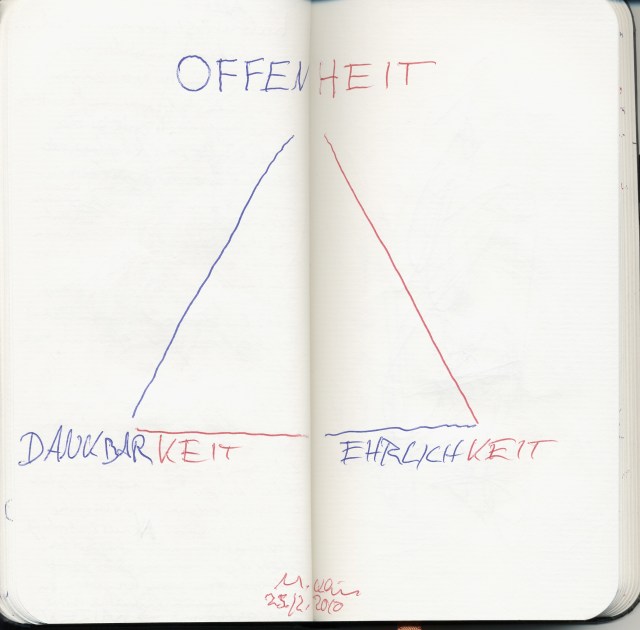 OFFENHEIT
DANKBARKEIT EHRLICHKEIT
25.12.2010